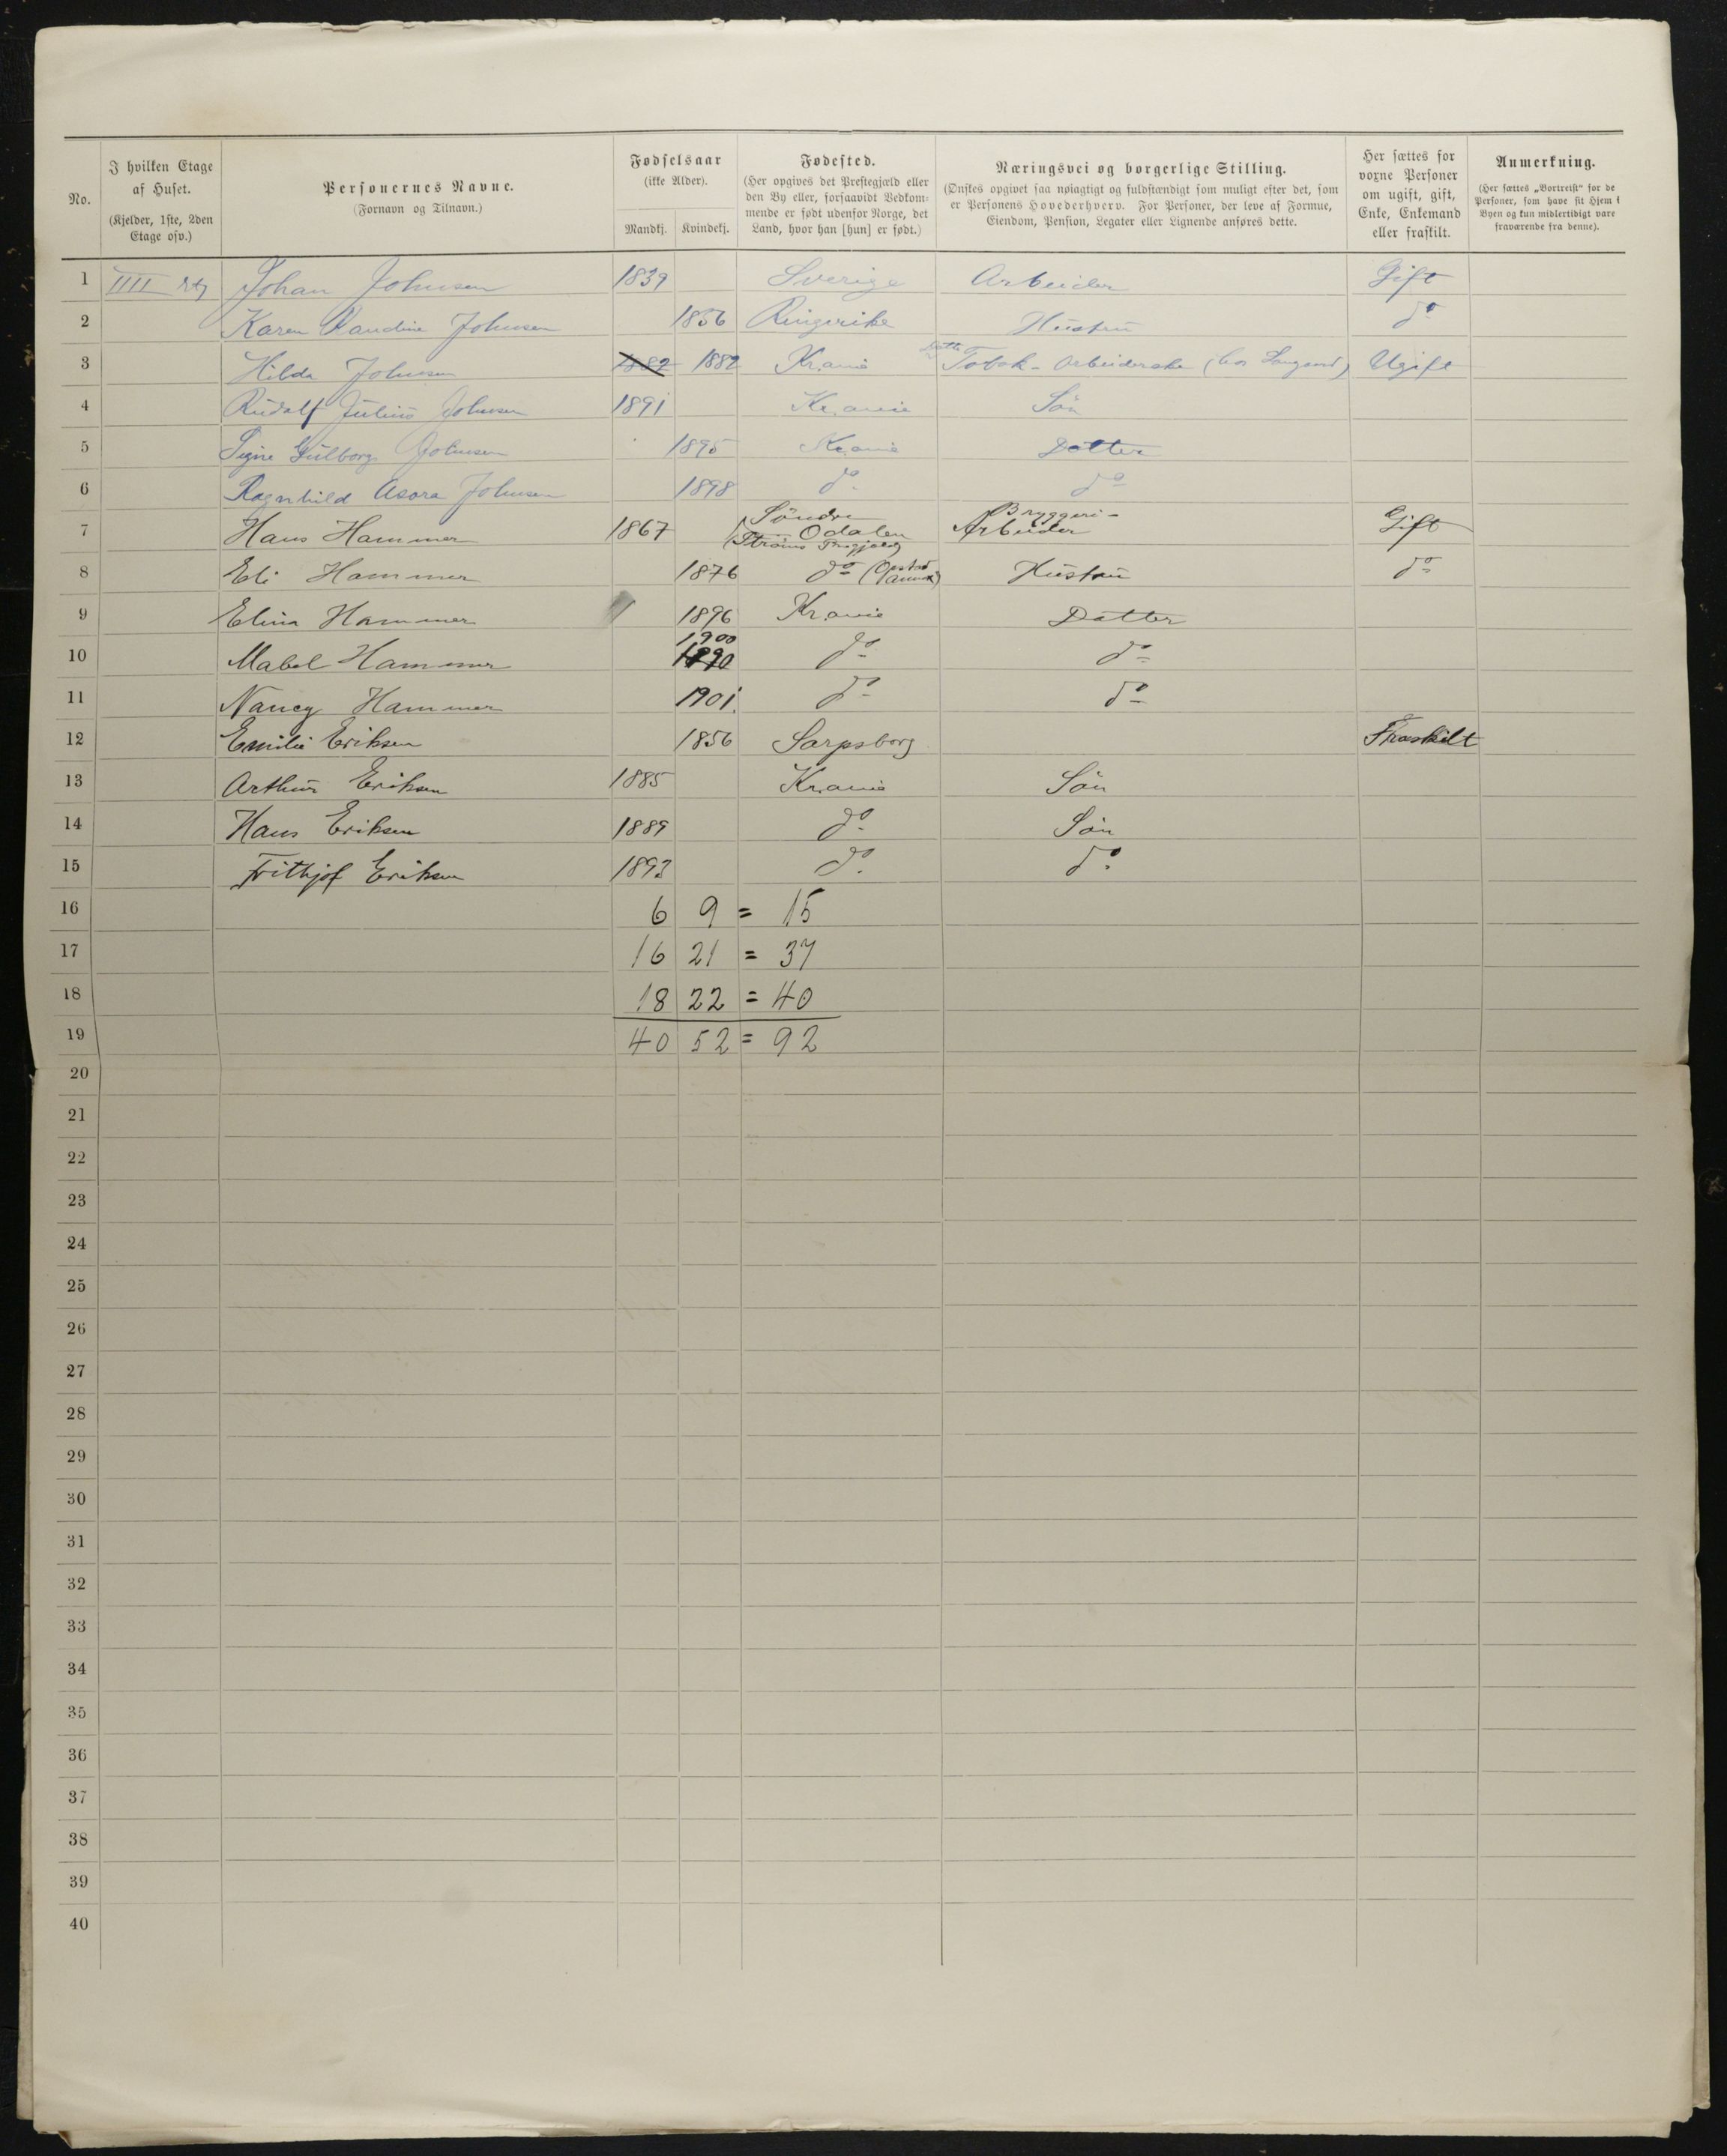 No.
I hvilken Etage af Huset.
(Kjelder, 1ste, 2den Etage osv.)
Personernes Navne.
(Fornavn og Tilnavn.)
Fødselsaar
(ikke Alder).
Mandkj. Kvindekj.
Fødested.
(Her opgives det Prestegjæld eller den By eller, forsaavidt Vedkommende er født udenfor Norge, det Land, hvor han [hun] er født.)
Næringsvei og borgerlige Stilling.
(Ønskes opgivet saa nøiagtigt og fuldstændigt som muligt efter det, som er Personens Hovederhverv. For Personer, der leve af Formue, Eiendom, Pension, Legater eller Lignende anføres dette.
Her sættes for voxne Personer om ugift, gift, Enke, Enkemand eller fraskilt.
Anmerkning.
(Her sættes „Bortreist“ for de Personer, som have sit Hjem i Byen og kun midlertidigt vare fraværende fra denne).
1 IIII Johan Johnsen 1839 Sverige Arbeider Gift
2 Karen Johnsen 1856 Ringerike Hustru do
3 Hilda Johnsen 1882 1882 Kr.ania Tobak-Arbeiderske (hos Langaard) Ugift
4 Rudolf Julius Johnsen 1891 Kr.ania Sön
5 Signe Gulborg Johnsen 1895 Kr.ania Datter
6 Ragnhild Asora Johnsen 1898 do do
7 Hans Hammer 1867 Söndre Odalen (Ströms Prgjæld) Bryggeri-Arbeider Gift
8 Eli Hammer 1876 do (Opstad Annex) Hustru do
9 Elina Hammer 1896 Kr.ania Datter
10 Mabel Hammer 1900 do do
11 Nancy Hammer 1901. do do
12 Emilie Eriksen 1856 Sarpsborg Fraskilt
13 Arthur Eriksen 1885 Kr.ania Sön
14 Hans Eriksen 1889 do Sön
15 Frithjof Eriksen 1893 do do
16 6 9 = 15
17 16 21 = 37
18 18 22 = 40
19 40 52 = 92
20
21
22
23
24
25
26
27
28
29
30
31
32
33
34
35
36
37
38
39
40